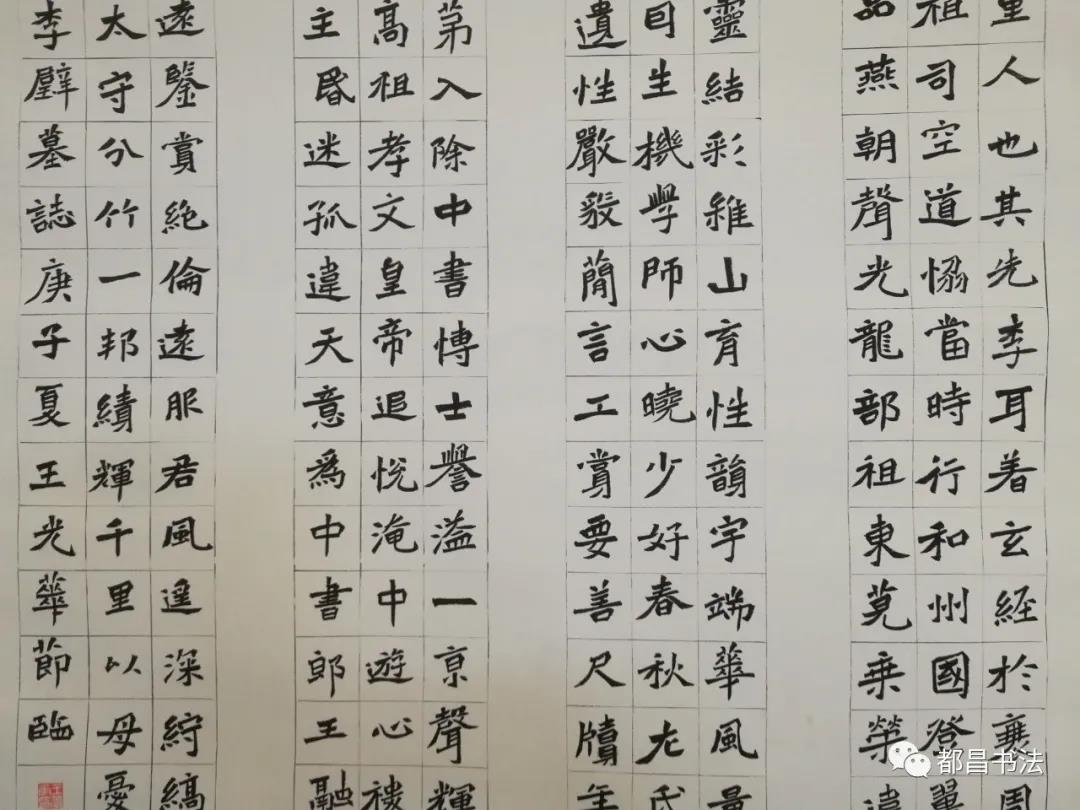 里人也其先李耳著玄經於衰周
祖司空道恊當時行和州國登翼
品燕朝聲光龍部祖東莞乗榮違
靈結彩雜山育性韻宇端華風量
自生機學師心曉少好春秋尢氏
遺性嚴毅蕳言工賞要善尺牘年
苐入除中書博士譽溢一京聲輝
高祖孝文皇帝追悅淹中遊心稷
主昏迷孤違天意為中書郎王融
遠鑒賞絶倫遠服君風遥深紵縞
太守分竹一邦績輝千里以母憂
李璧墓誌庚子夏王光華節臨
都昌书法